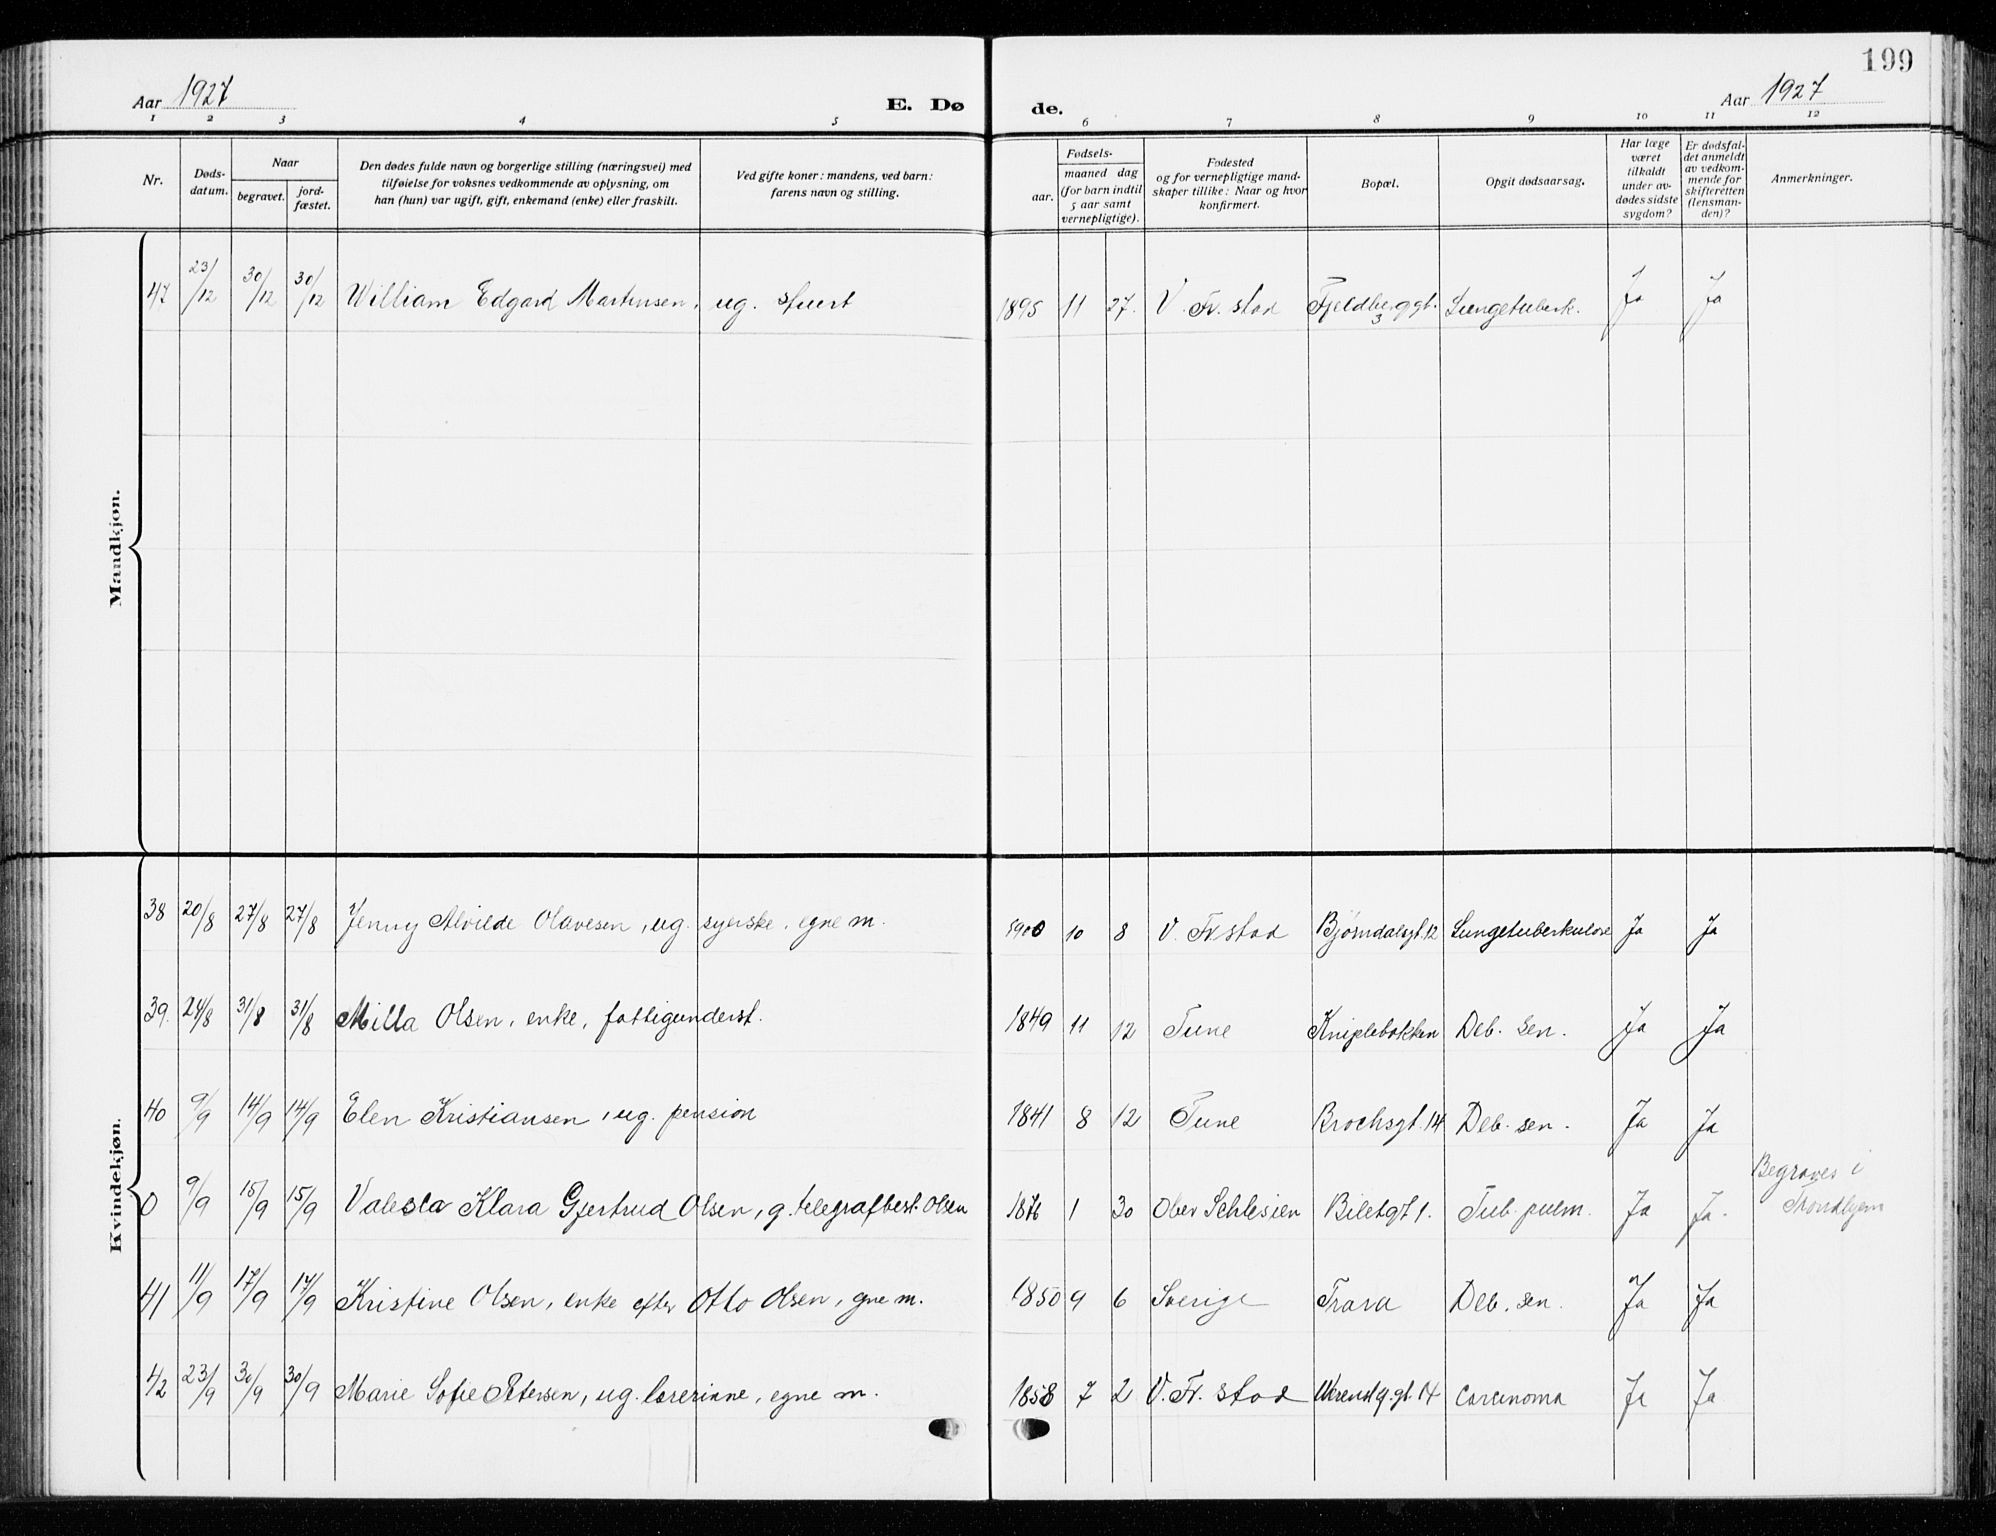 199
Aar 1927
E. Dø
de.
Aar 1927
1 2 3 4 5 6 7 8 9 10 11 12
Nr.
Døds-
datum.
Naar
begravet.
jord-
fæstet.
Den dødes fulde navn og borgerlige stilling (næringsvei) med
tilføielse for voksnes vedkommende av oplysning, om
han (hun) var ugift, gift, enkemand (enke) eller fraskilt.
Ved gifte koner: mandens, ved barn:
farens navn og stilling.
Fødsels-
aar.
maaned dag
(for barn indtil
5 aar samt
vernepligtige).
Fødested
og for vernepligtige mand-
skaper tillike: Naar og hvor
konfirmert.
Bopæl.
Opgit dødsaarsag.
Har læge
været
tilkaldt
under av-
dødes sidste
sygdom?
Er dødsfal-
det anmeldt
av vedkom-
mende for
skifteretten
(lensman-
den)?
Anmerkninger.
Mandkjøn.
47 23/12 30/12 30/12 William Edgard Martinsen, ug. stuert 1895 11 27. V. Fr. stad Fjeldberggt. 3 Lungetuberk. Ja Ja
Kvindekjøn.
38 20/8 27/8 27/8 Jenny Alvilde Olavesen, ug. syerske, egne m. 1900 10 8 V. Fr stad Bjørndalsgt. 12 Lungetuberkulose Ja Ja
39. 24/8 31/8 31/8 Milla Olsen, enke, fattigunderst. 1849 11 12 Tune Kniplebakken Deb. sen. Ja Ja
40 9/9 14/9 14/9 Elen Kristiansen, ug. pension 1841 8 12 Tune Brochsgt. 14 Deb. sen. Ja Ja
0 9/9 15/9 15/9 Valeska Klara Gjertrud Olsen, g. telegrafbest. Olsen 1876 1 30 Ober Schlesien Biletgt 1. Tub. pulm. Ja Ja. Begraves i
Trondhjem
41 11/9 17/9 17/9 Kristine Olsen, enke efter Otto Olsen, egne m. 1850 9 6 Sverige Trara Deb. sen. Ja Ja
42 23/9 30/9 30/9 Marie Sofie Petersen, ug. lærerinne, egne m. 1858 7 2 V. Fr. stad 14 Carcinoma Ja Ja